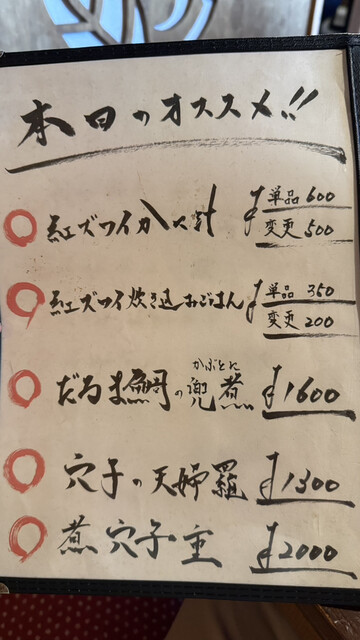 本日のオススメ!!
紅ズワイガニ汁 単品 600
変更 500
紅ズワイ炊き込みごはん 単品 350
変更 200
かぶとに
だるま鯛の兜煮 ¥1600
穴子の天婦羅 ¥1300
煮穴子重 ¥2000